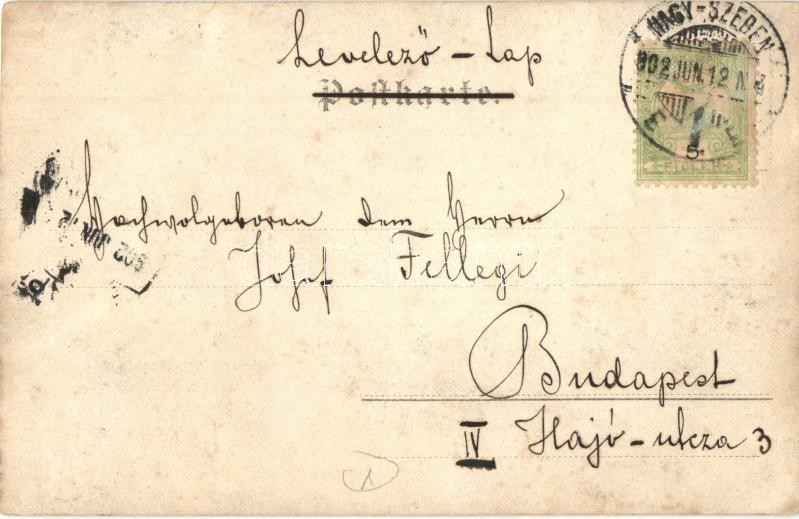 Levelező-Lap
Postkarte.
NAGY-SZEBEN
902 JUN. 12 N
5
FILLÉR
Hochwolgeboren dem Herrn
Josef Fellegi
Budapest
IV Hajó-utcza 3
902 JUN
1